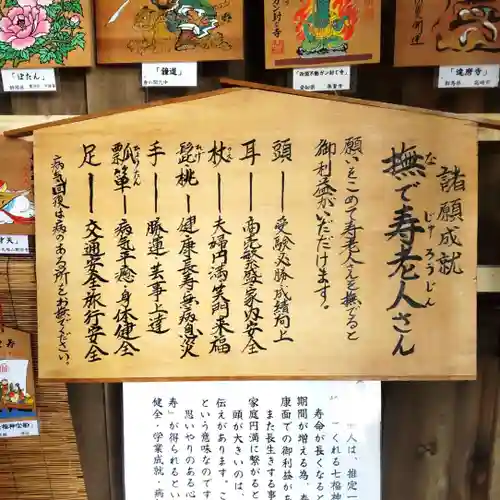 「ぼたん」
「鍾馗」
「達磨寺」
諸願成就
撫で寿老人さん
な
じゅろうじん
願いをこめて寿老人さんを撫でると
御利益がいただけます。
頭ー受験必勝・成績向上
耳ー商売繁盛・家内安全
杖ー夫婦円満・笑門来福
つえ
髭・桃ー健康長寿・無病息災
ひげ
手ー勝運・芸事上達
瓢箪ー病気平癒・身体健全
ひょうたん
足ー交通安全・旅行安全
病気回復は病のある所をお撫でください。
くれる七福神
寿命が長くなる
期間が増える為、
康面での御利益が
また長生きする事
家庭円満に繋がると
頭が大きいのは、
伝えがあります。
という意味なのです
思いやりのある心
寿」が得られるとい
健全・学業成就・病